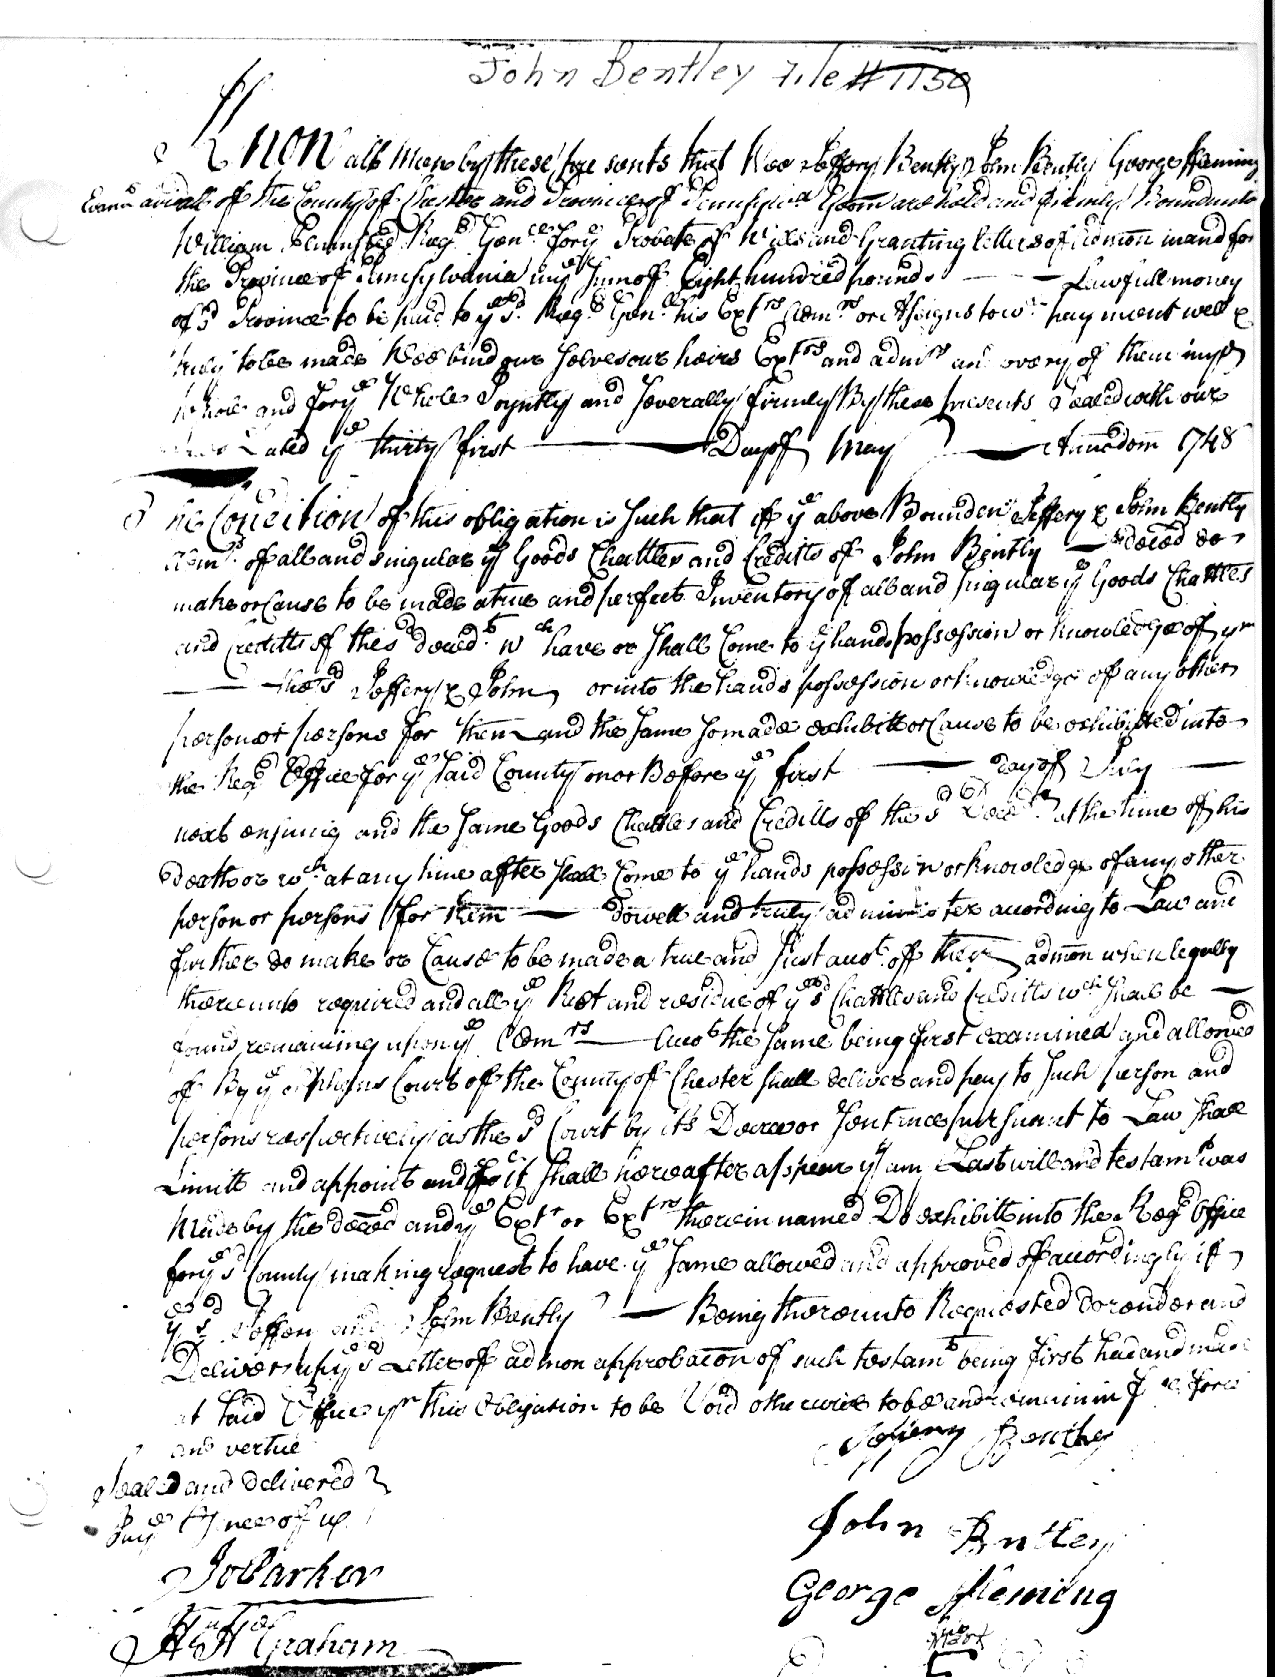 John Bentley File #1150
Know all Men by these presents that Wee Jeffery Bently John Bently George Fleming
Evans and all of the County of Chester and Province of Pensilvia Gentn are held and firmly Bound unto
William Plumsted Regr Genll for ye Probate of Wills and Granting letters of admon in and for
the Province of Pensylvania in ye sum off Eight hundred pounds Lawfull money
of sd Province to be paid to ye sd Regr Genll his Extrs Admrs or Assigns to wch payment well &
truly to be made Wee bind our selves our heirs Extrs and admrs and every of them in ye
Whole and for ye Whole Joyntly and severally firmly By these presents Sealed with our
Dated ye thirty first Day of May Annodom 1748
The Condition of this obligation is such that if ye above Bounden Jeffery & John Bently
Admrs of all and singular ye Goods Chattles and Credits of John Bently deced do
make or Cause to be made a true and perfect Inventory of all and singular ye Goods Chattles
and Creditts of the sd deced wch have or shall Come to ye hands possession or knowledge of ym
the sd Jeffery & John or into the hands possession or knowledge off any other
person or persons for them and the same so made exhibitt or Cause to be exhibitted into
the Regr Office for ye said County on or Before ye first day of July
next ensuing and the same Goods Chattles and Creditts of the sd Deced at the time of his
death or wch at any time after shall Come to ye hands possession or knowledge of any other
person or persons for them do well and truly administer according to Law and
further do make or Cause to be made a true and just acct off their admon when legally
thereunto required and all ye Rest and residue of ye sd Chattles and Creditts wch shall be
found remaining upon ye Admrs Acct the same being first examined and allowed
of By ye Orphans Court of the County of Chester shall deliver and pay to such person and
persons respectively as the sd Court by its Decree or sentence pursuant to Law shall
Limitt and appoint and if it shall hereafter appear yt any Last will and testamt was
made by the deced and ye Extr or Extrs therein named Do exhibitt into the Regr Office
for ye sd County making request to have ye same allowed and approved off accordingly if
ye sd Jeffery and John Bently Being thereunto Requested do render and
Deliver up ye sd Letter of admon approbacon of such testamt being first had and made
at said Office yn this obligation to be Void otherwise to be and remain in full force
and vertue
Sealed and delivered
In ye Presence off us
Jeffery Bentley
John Bentley
George Fleming
Jo Parker
Hen Hale Graham
his
mark